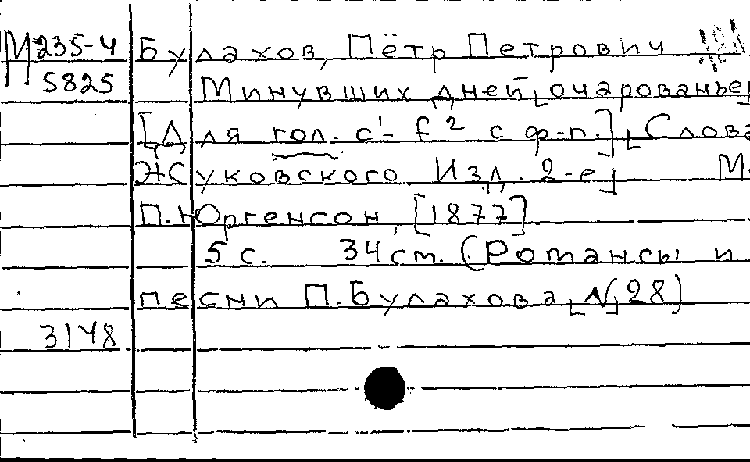 М 235-4 Булахов, Пётр Петрович
5825 Минувших дней очарованье
[Для гол. c¹- f² с ф-п.] Слова
Жуковского. Изд. 2-е М.
П. Юргенсон, [1877]
5 с. 34 см. (Романсы и
песни П. Булахова, N 28)
3148